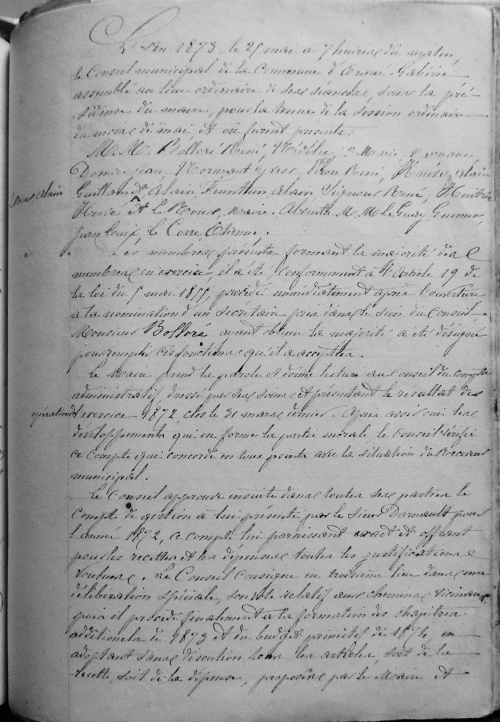 L'an 1873, le 25 mai à 7 heures du matin,
le Conseil municipal de la Commune d'Ergué Gabéric
assemblé au lieu ordinaire de ses séances, sous la pré-
sidence du maire, pour la tenue de la session ordinaire
du mois de mai, et où furent présents:
M. M. Bolloré René,
Jean, Normant Yves, René, Alain
Guillaume Alain,
et Le Marie. Absents M. M. Le Guay Guenno,
Jean Louis, Le Corre Etienne.
Les membres présents formant la majorité des
membres en exercice, il a été conformément à l'article 19 de
la loi du 5 mai 1855, procédé immédiatement après l'ouverture
à la nomination d'un secrétaire pris dans le sein du Conseil
Monsieur Bolloré ayant obtenu la majorité a été désigné
pour remplir ces fonctions qu'il a acceptées.
Le Maire prend la parole et donne lecture au Conseil du compte
administratif, dressé par ses soins et présentant le résultat des
opérations exercice 1872, clos le 31 mars dernier. Après avoir ouï les
développements qui en forme la partie morale le Conseil vérifie
ce compte qui concorde en tous points avec la situation du Receveur
municipal.
Le Conseil approuve ensuite dans toutes ses parties le
Compte de gestion à lui présenté par le Sieur Darnault pour
l'année 1872, ce compte lui paraissant exact et offrant
pour les recettes et les dépenses toutes les justifications
voulues. Le Conseil consigne en troisième lieu dans une
délibération spéciale, son vote relatif aux chemins vicinaux
puis il procède finalement à la formation des chapitres
additionnels de 1873 et du budget primitif de 1874 en
adoptant sans discution tous les articles soit de la
recette, soit de la dépense, proposés par le Maire et